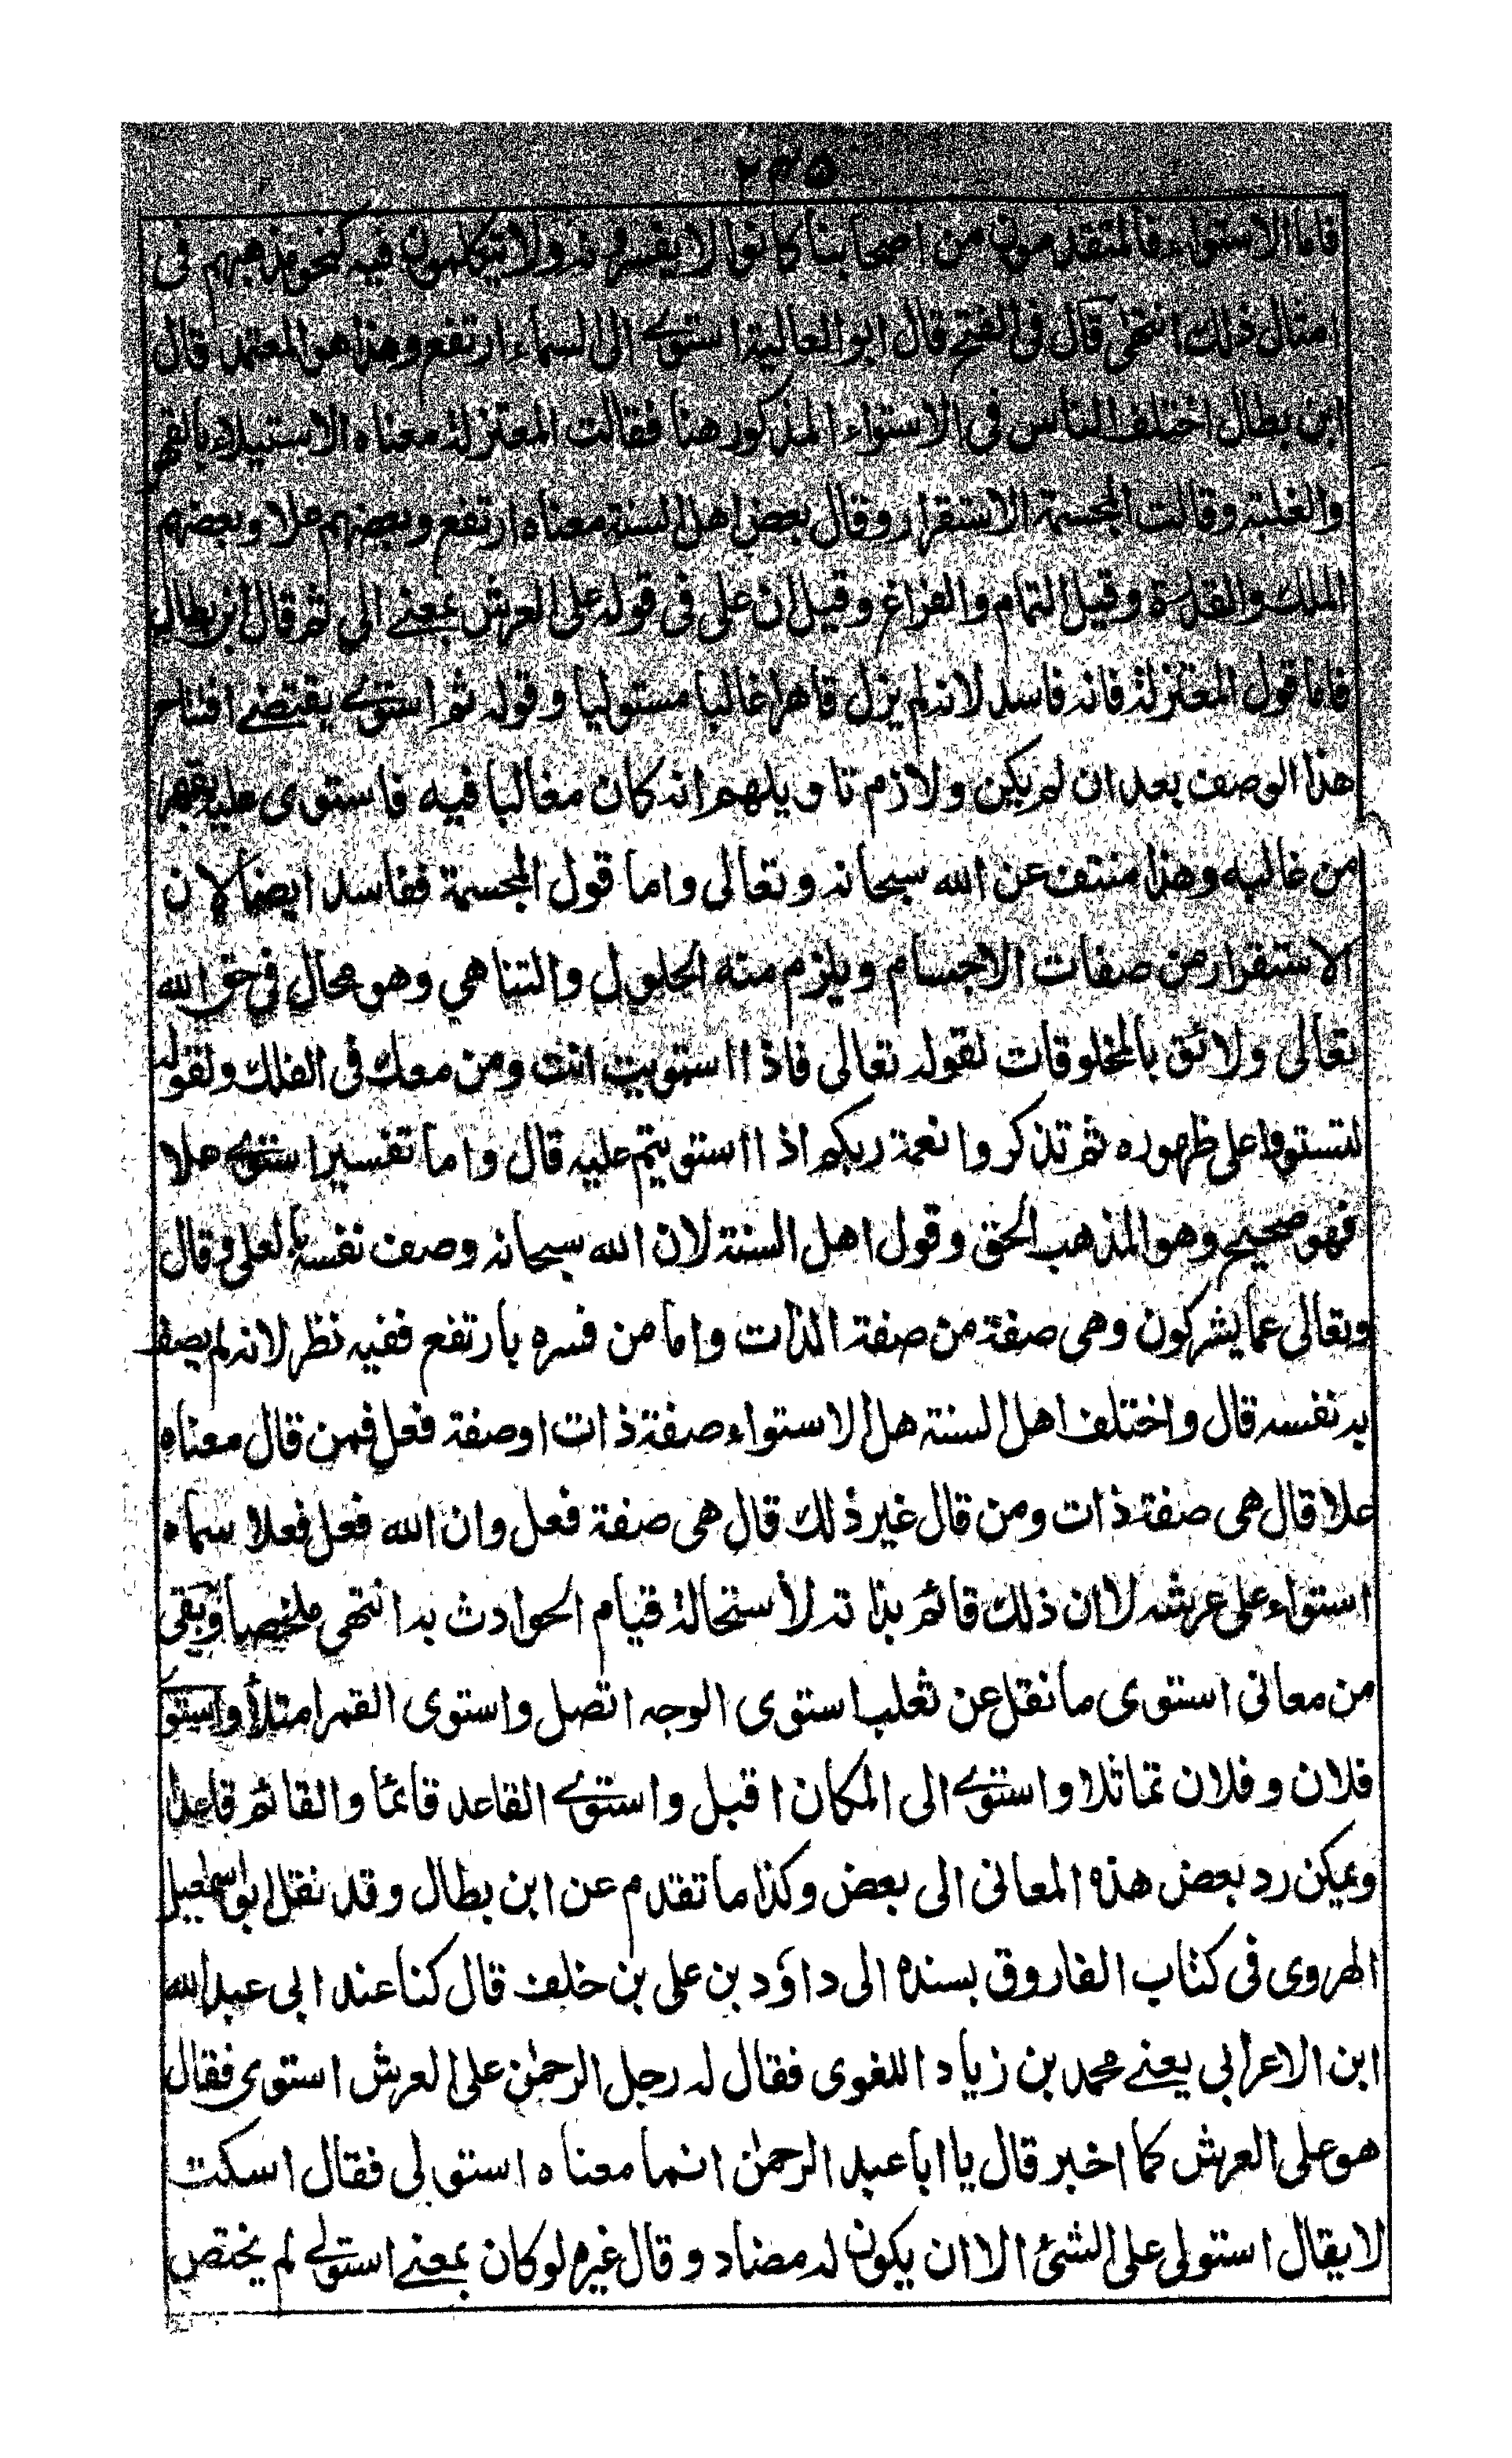 ٢٣٥
فاما الاستواء فالمتقدمون من اصحابنا كانوا لا يفسرونه ولا يتكلمون فيه كنحو مذهبهم فى
امثال ذلك انتهى قال فى الفتح قال ابو العالية استوى الى السماء ارتفع وهذا هو المعتمد قال
ابن بطال اختلف الناس فى الاستواء المذكور هنا فقالت المعتزلة معناه الاستيلاء بالقهر
والغلبة وقالت المجسمة الاستقرار وقال بعض اهل السنة معناه ارتفع وبعضهم علا وبعضهم
الملك والقدرة وقيل التمام والفراغ وقيل ان على فى قوله على العرش بمعنے الى ثم قال ابن بطال
فاما قول المعتزلة فانه فاسد لانه لم يزل قاهرا غالبا مستوليا وقوله ثم استوى يقتضے افتتاح
هذا الوصف بعد ان لم يكن ولازم تاويلهم انه كان مغالبا فيه فاستوى عليه بقهر
من غالبه وهذا منتف عن الله سبحانه وتعالى واما قول المجسمة ففاسد ايضا لان
الاستقرار من صفات الاجسام ويلزم منه الحلول والتناهي وهو محال فى حق الله
تعالى ولائق بالمخلوقات لقوله تعالى فاذا استويت انت ومن معك فى الفلك ولقوله
لتستووا على ظهوره ثم تذكروا نعمة ربكم اذا استويتم عليه قال واما تفسير استوى علا
فهو صحيح وهو المذهب الحق وقول اهل السنة لان الله سبحانه وصف نفسه بالعلى وقال
وتعالى عما يشركون وهى صفة من صفة الذات واما من فسره بارتفع ففيه نظر لانه لم يصف
به نفسه قال واختلف اهل السنة هل الاستواء صفة ذات او صفة فعل فمن قال معناه
علا قال هى صفة ذات ومن قال غير ذلك قال هى صفة فعل وان الله فعل فعلا سماه
استواء على عرشه لا ان ذلك قائم بذاته لأستحالة قيام الحوادث به انتهى ملخصا وبقى
من معانى استوى ما نقل عن ثعلب استوى الوجه اتصل واستوى القمر امتلأ واستوى
فلان وفلان تماثلا واستوى الى المكان اقبل واستوے القاعد قائما والقائم قاعدا
ويمكن رد بعض هذه المعانى الى بعض وكذا ما تقدم عن ابن بطال وقد نقل ابو اسمعيل
الهروى فى كتاب الفاروق بسنده الى داؤد بن على بن خلف قال كنا عند ابى عبد الله
ابن الاعرابي يعنے محمد بن زياد اللغوى فقال له رجل الرحمٰن على العرش استوى فقال
هو على العرش كما اخبر قال يا ابا عبد الرحمٰن انما معناه استولى فقال اسكت
لا يقال استولى على الشئ الا ان يكون له مضاد وقال غيره لو كان بمعنے استولے لم يختص